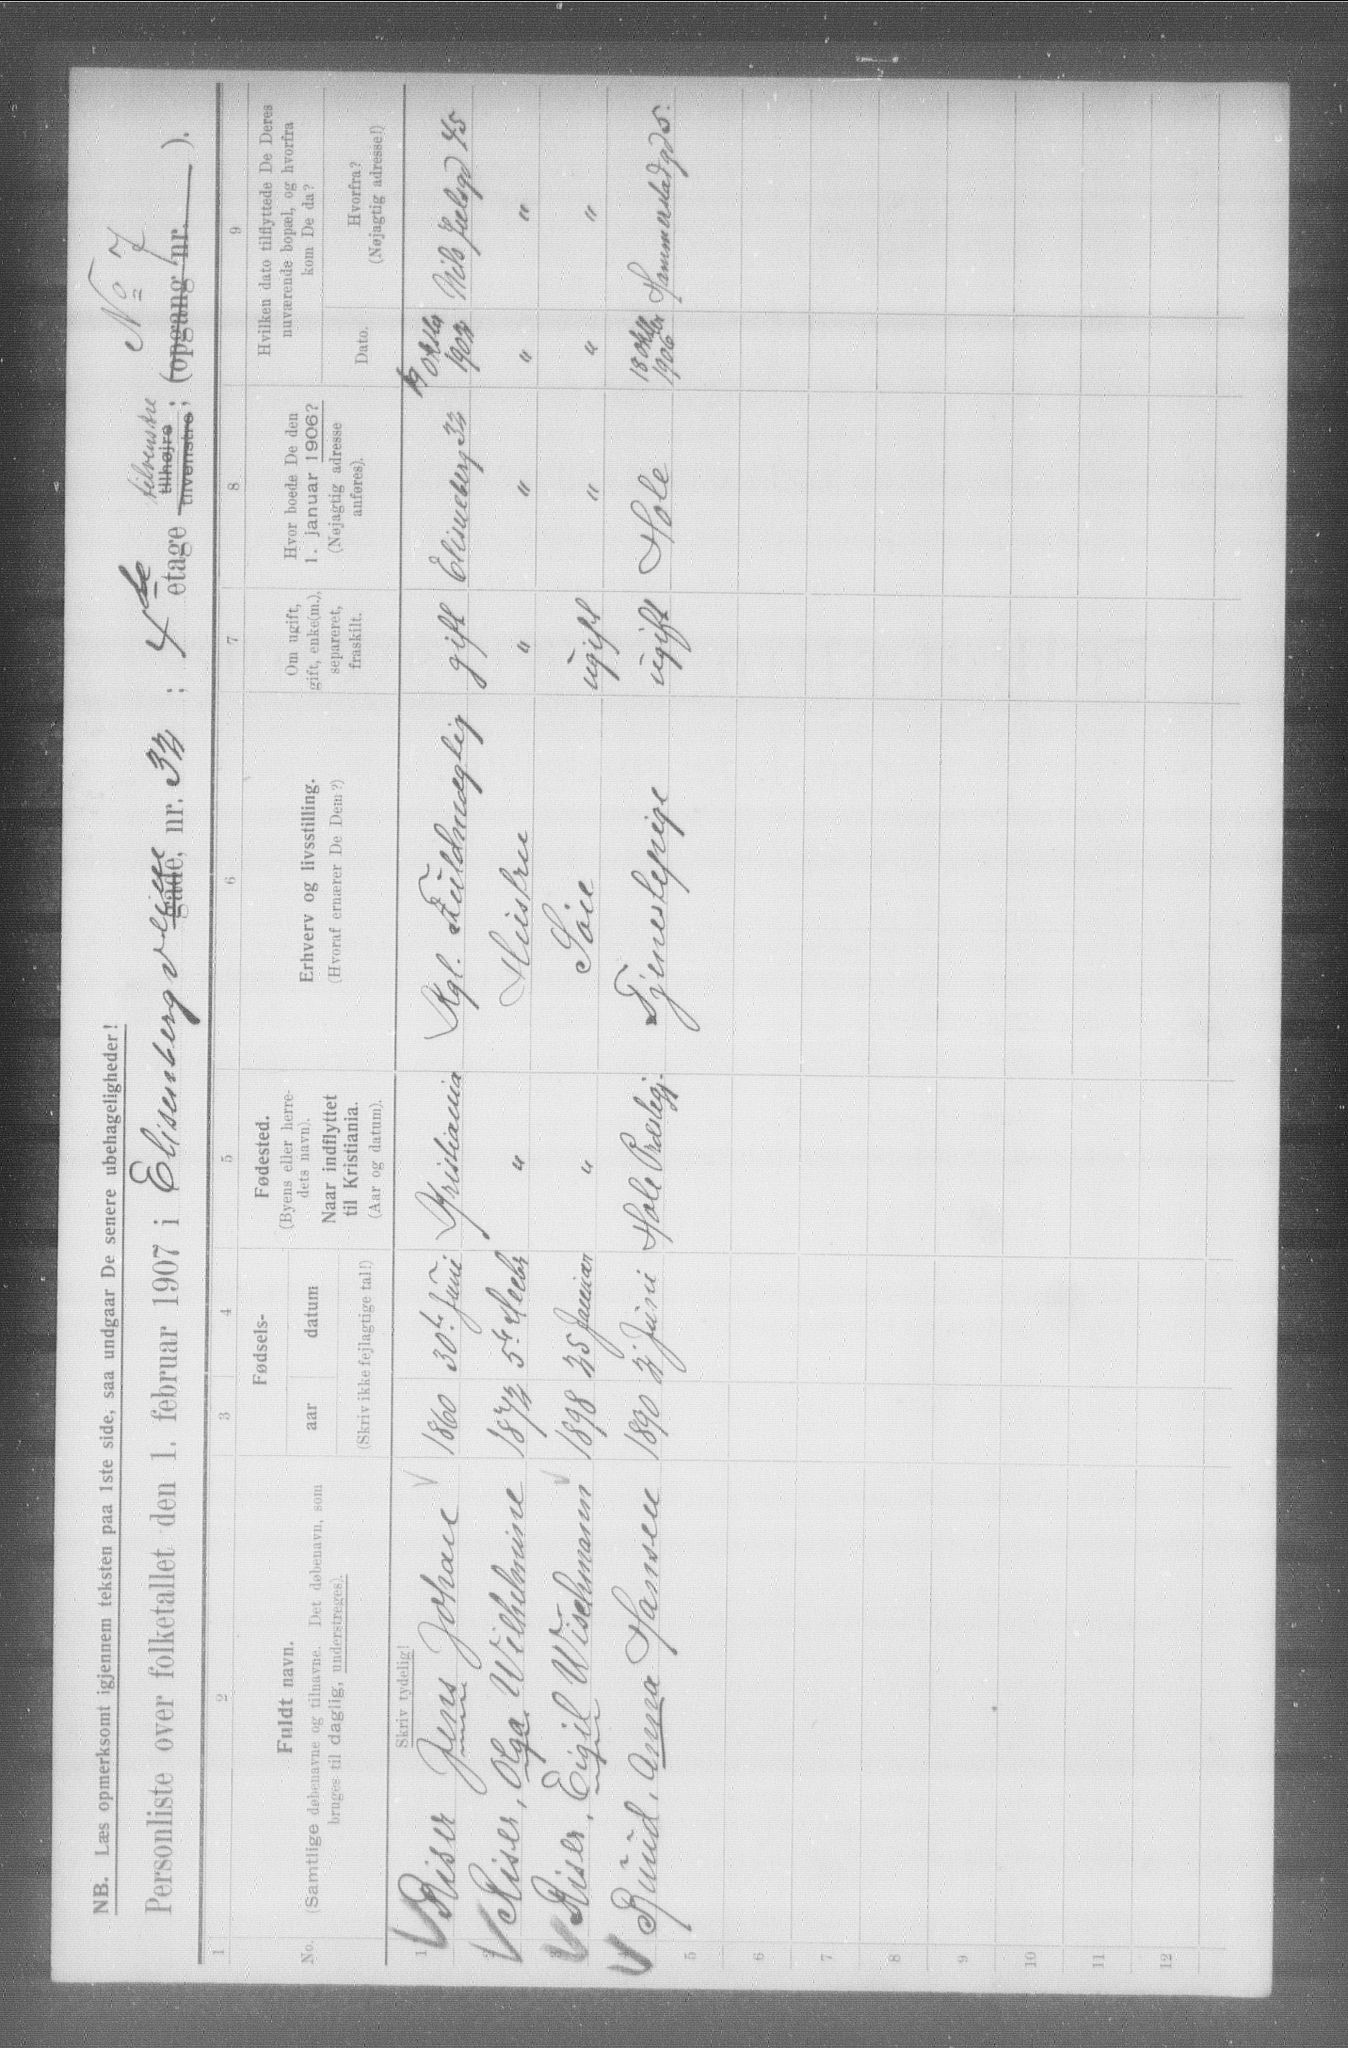 NB. Læs opmerksomt igjennem teksten paa 1ste side, saa undgaar De senere ubehageligheder!
No 7
Personliste over folketallet den 1. februar 1907 i Elisenberg veien gade, nr. 32 ; 4de etage tilvenstre tilhøjre tilvenstre; (opgang nr. ).
1 2 3 4 5 6 7 8 9
No.
Fuldt navn.
(Samtlige døbenavne og tilnavne. Det døbenavn, som
bruges til daglig, understreges).
Fødsels-
aar datum
(Skriv ikke fejlagtige tal!)
Fødested.
(Byens eller herre-
dets navn).
Naar indflyttet
til Kristiania.
(Aar og datum).
Erhverv og livsstilling.
(Hvoraf ernærer De Dem?)
Om ugift,
gift, enke(m.),
separeret,
fraskilt.
Hvor boede De den
1. januar 1906?
(Nøjagtig adresse
anføres).
Hvilken dato tilflyttede De Deres
nuværende bopæl, og hvorfra
kom De da?
Dato.
Hvorfra?
(Nøjagtig adresse!)
Skriv tydelig!
1 Riser Jens Johan 1860 30te Juni Kristiania Kgl. Fuldmægtig gift Elisenberg 32 Oktbr 190 Nils Juelsgd 45
2 Riser, Olga Wilhelmine 1872 5te Decbr " Husfru " " " "
3 Riser, Eigil Wischmann 1898 25 Januar " Søn ugift " " "
4 Ruud, Anna Hansen 1890 2 Juni Hole Præstegj. Tjenestepige ugift Hole 18 Oktbr 1906 Hammerstadgd 5.
5
6
7
8
9
10
11
12